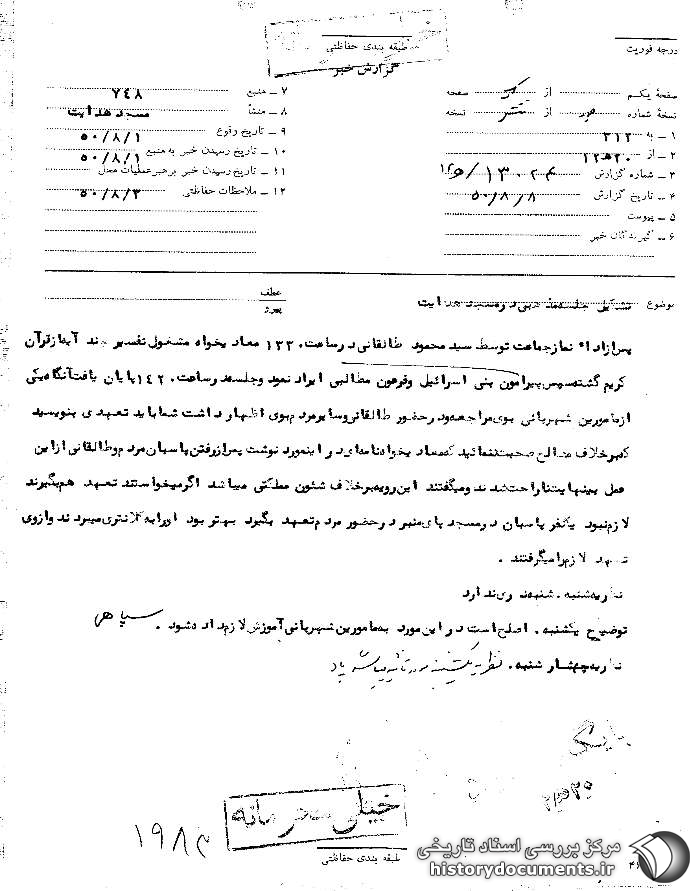 طبقه بندی حفاظتی
درجه فوریت
گزارش خبر
صفحهٔ یکم از یک صفحه
نسخهٔ شماره از نسخه
۱ – به ۳۱۲
۲ – از ۲۰ ه ۱۲
۳ – شماره گزارش
۴ – تاریخ گزارش ۵۰/۸/۸
۵ – پیوست
۶ – گیرندگان خبر
۷ – منبع ۷۴۸
۸ – منشأ مسجد هدایت
۹ – تاریخ وقوع ۵۰/۸/۱
۱۰ – تاریخ رسیدن خبر به منبع ۵۰/۸/۱
۱۱ – تاریخ رسیدن خبر برهبر عملیات محل
۱۲ – ملاحظات حفاظتی ۵۰/۸/۳
موضوع تشکیل جلسه مذهبی در مسجد هدایت
عطف
پیرو
پس از اداء نماز جماعت توسط سید محمود طالقانی در ساعت ۱۳۳۰ معاد یخواه مشغول تفسیر چند آیه از قرآن
کریم گشته سپس پیرامون بنی اسرائیل وفرعون مطالبی ایراد نمود وجلسه در ساعت ۱۴۲۰ پایان یافت آنگاه یکی
از مامورین شهربانی بوی مراجعه و در حضور طالقانی و سایر مردم بوی اظهار داشت شما باید تعهدی بنویسید
که بر خلاف مصالح صحبت ننمائید که معاد یخواه نامه ای در اینمورد نوشت پس از رفتن پاسبان مردم و طالقانی از این
عمل بینهایت ناراحت شدند ومیگفتند این رویه بر خلاف شئون مملکتی میباشد اگر میخواستند تعهد هم بگیرند
لازم نبود یکنفر پاسبان در مسجد پای منبر در حضور مردم تعهد بگیرد بهتر بود او را به کلانتری میبردند و از وی
تعهد لازم را میگرفتند .
نظریه شنبه . شنبه نظری ندارد
توضیح یکشنبه . اصلح است در این مورد به مامورین شهربانی آموزش لازم داده شود . سپاهی
نظریه چهارشنبه . نظریه یکشنبه مورد تائید میباشد
بایگانی
خیلی محرمانه
طبقه بندی حفاظتی
مرکز بررسی اسناد تاریخی
historydocuments.ir